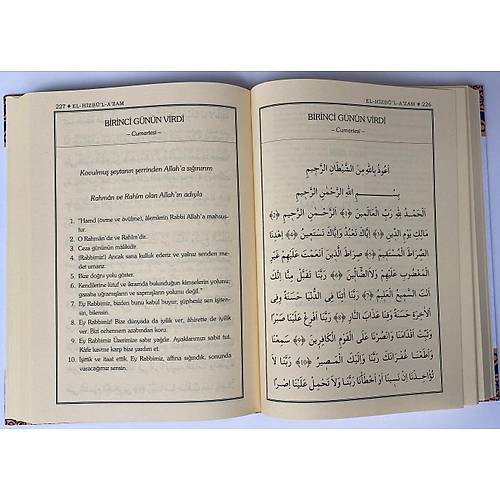 227 ● EL-HİZBÜ'L-A'ZAM
BİRİNCİ GÜNÜN VİRDİ
– Cumartesi –
Kovulmuş şeytanın şerrinden Allah'a sığınırım
Rahmân ve Rahîm olan Allah'ın adıyla
1. "Hamd (övme ve övülme), âlemlerin Rabbi Allah'a mahsus-
tur.
2. O Rahmân'dır ve Rahîm'dir.
3. Ceza gününün mâlikidir.
4. (Rabbimiz!) Ancak sana kulluk ederiz ve yalnız senden me-
det umarız.
5. Bize doğru yolu göster.
6. Kendilerine lütuf ve ikramda bulunduğun kimselerin yolunu;
gazaba uğramışların ve sapmışların yolunu değil!
7. Ey Rabbimiz, bizden bunu kabul buyur; şüphesiz sen işiten-
sin, bilensin.
8. Ey Rabbimiz! Bize dünyada da iyilik ver, âhirette de iyilik
ver. Bizi cehennem azabından koru.
9. Ey Rabbimiz Üzerimize sabır yağdır. Ayaklarımızı sabit tut.
Kâfir kavme karşı bize yardım et.
10. İşittik ve itaat ettik. Ey Rabbimiz, affına sığındık, sonunda
varacağımız sensin.
EL-HİZBÜ'L-A'ZAM ● 226
BİRİNCİ GÜNÜN VİRDİ
– Cumartesi –
اَعُوذُ بِاللّٰهِ مِنَ الشَّيْطَانِ الرَّجِيمِ
بِسْــــــمِ اللّٰهِ الرَّحْمٰنِ الرَّحِيمِ
اَلْحَمْدُ لِلّٰهِ رَبِّ الْعَالَمِينَ ﴿١﴾ اَلرَّحْمٰنِ الرَّحِيمِ ﴿٢﴾
مَالِكِ يَوْمِ الدِّينِ ﴿٣﴾ اِيَّاكَ نَعْبُدُ وَاِيَّاكَ نَسْتَعِينُ ﴿٤﴾ اِهْدِنَا
الصِّرَاطَ الْمُسْتَقِيمَ ﴿٥﴾ صِرَاطَ الَّذِينَ اَنْعَمْتَ عَلَيْهِمْ غَيْرِ
الْمَغْضُوبِ عَلَيْهِمْ وَلَا الضَّالِّينَ ﴿٦﴾ رَبَّنَا تَقَبَّلْ مِنَّا اِنَّكَ
اَنْتَ السَّمِيعُ الْعَلِيمُ ﴿٧﴾ رَبَّنَا اٰتِنَا فِي الدُّنْيَا حَسَنَةً وَفِي
الْاٰخِرَةِ حَسَنَةً وَقِنَا عَذَابَ النَّارِ ﴿٨﴾ رَبَّنَا اَفْرِغْ عَلَيْنَا صَبْرًا
وَثَبِّتْ اَقْدَامَنَا وَانْصُرْنَا عَلَى الْقَوْمِ الْكَافِرِينَ ﴿٩﴾ سَمِعْنَا
وَاَطَعْنَا غُفْرَانَكَ رَبَّنَا وَاِلَيْكَ الْمَصِيرُ ﴿١٠﴾ رَبَّنَا لَا
تُؤَاخِذْنَا اِنْ نَسِينَا اَوْ اَخْطَأْنَا رَبَّنَا وَلَا تَحْمِلْ عَلَيْنَا اِصْرًا